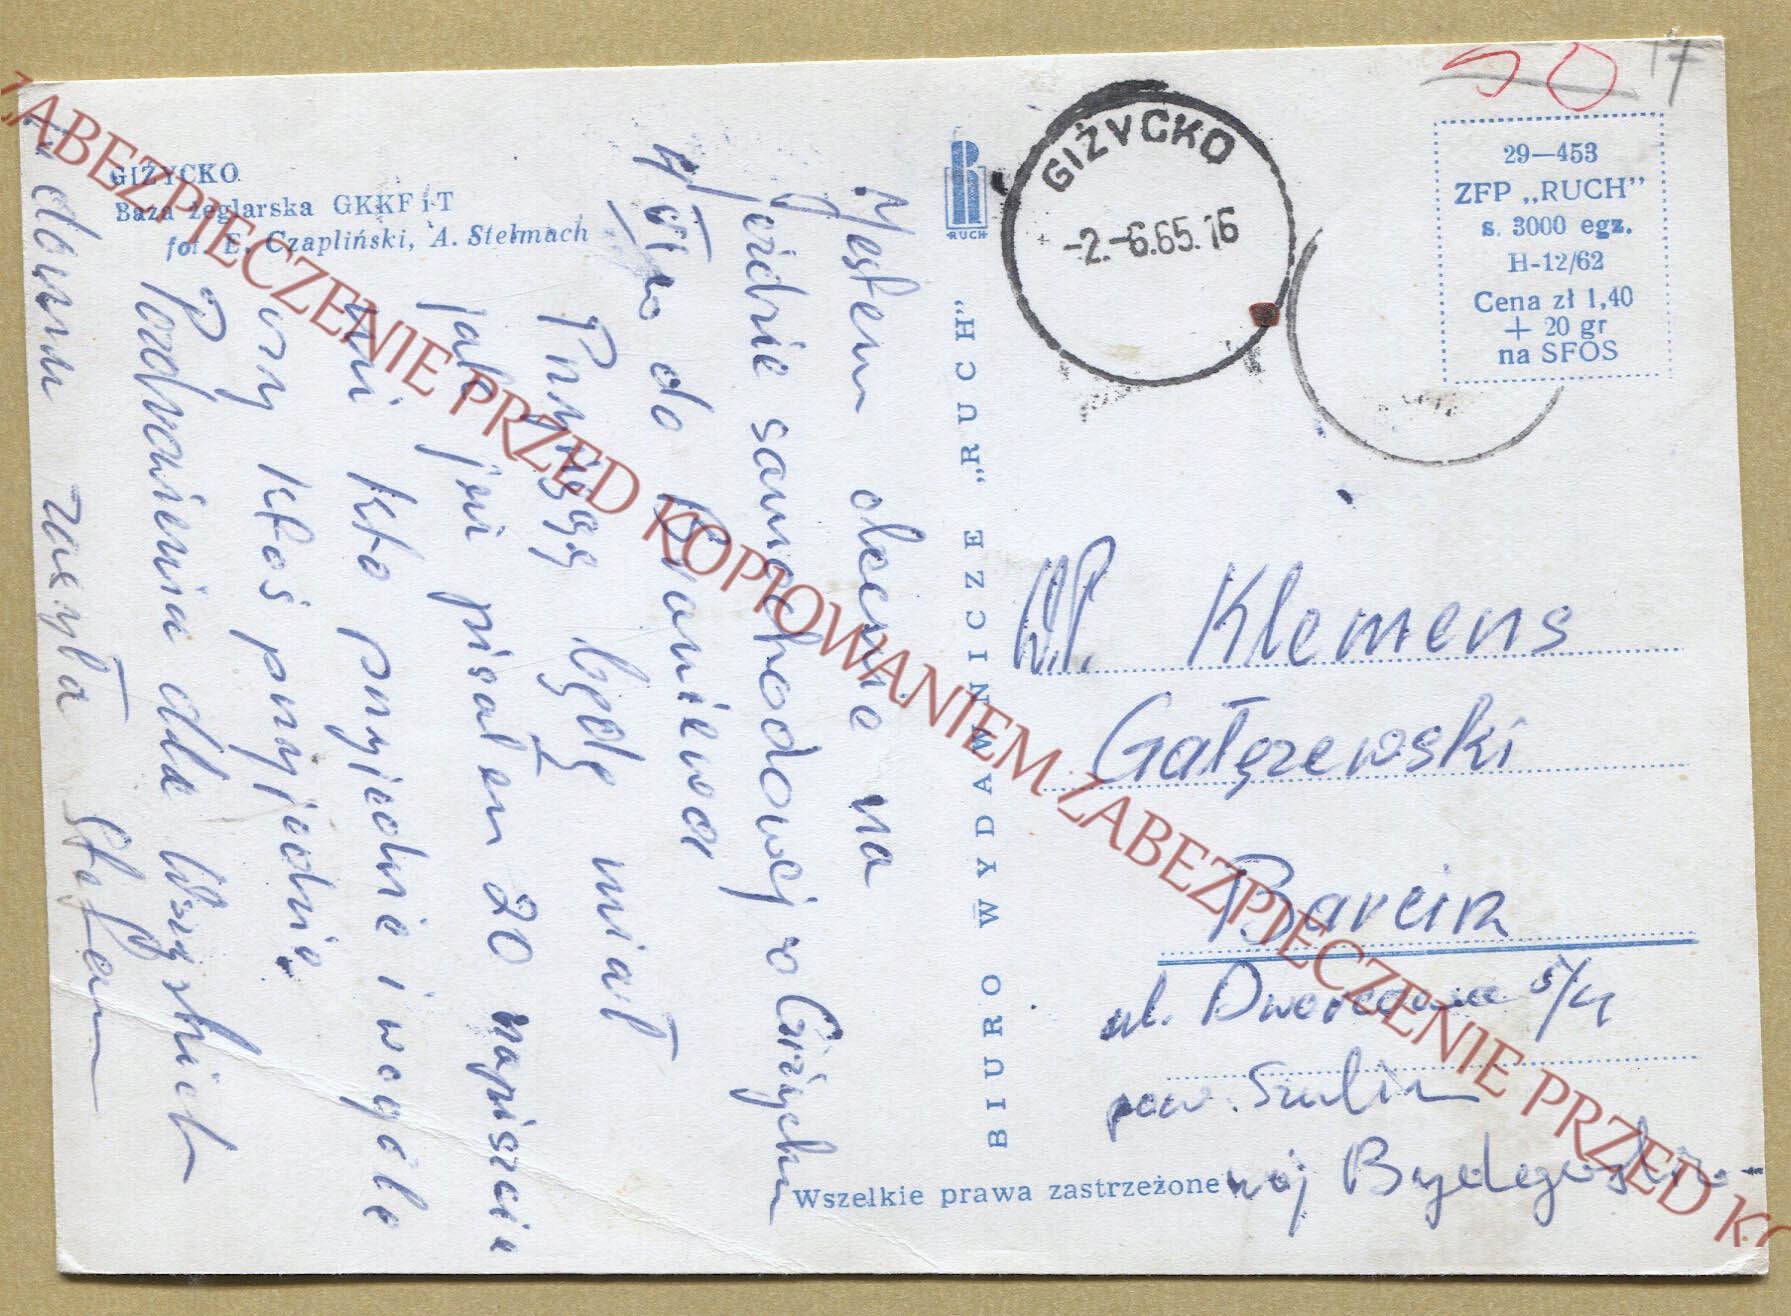 GIŻYCKO
Baza żeglarska GKKFiT
fot. E. Czapliński, A. Stelmach
Jestem obecnie na
jeździe samochodowej w Giżycku
do Braniewa
Przysięgę będę miał
jak już pisałem 20 napiszcie
mi kto przyjedzie i wogóle
czy ktoś przyjedzie.
Pozdrowienia dla wszystkich
w domu zasyła Stefan
RUCH
BIURO WYDAWNICZE „RUCH”
GIŻYCKO
-2.-6.65.16
50
17
29—453
ZFP „RUCH”
s. 3000 egz.
H-12/62
Cena zł 1,40
+ 20 gr
na SFOS
W.P. Klemens
Gałęzewski
Barcin
ul. Dworcowa 5/4
pow. Szubin
woj Bydgoskie
Wszelkie prawa zastrzeżone
ZABEZPIECZENIE PRZED KOPIOWANIEM ZABEZPIECZENIE PRZED KO